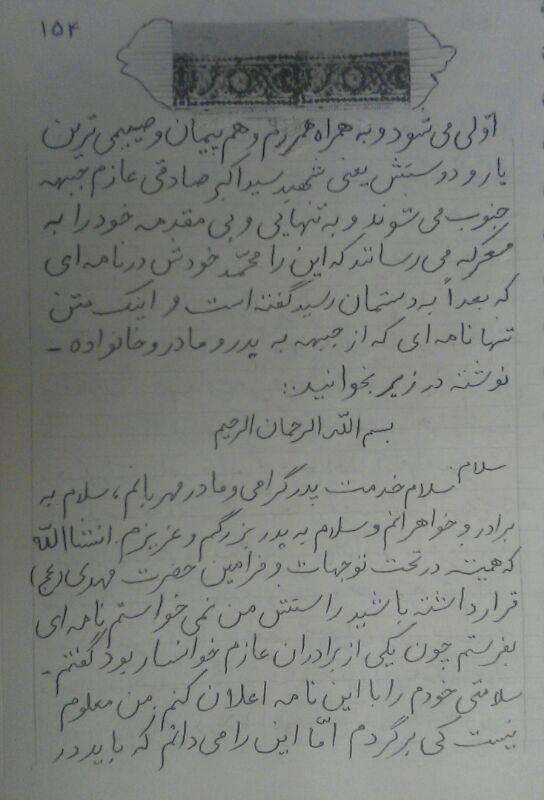 ۱۵۴
اوّلی می شود و به همراه همرزم و هم پیمان و صمیمی ترین
یار و دوستش یعنی شهید سید اکبر صادقی عازم جبهه
جنوب می شوند و به تنهایی و بی مقدمه خود را به
معرکه می رسانند که این را محمّد خودش در نامه ای
که بعداً به دستمان رسید گفته است و اینک متن
تنها نامه ای که از جبهه به پدر و مادر و خانواده -
نوشته در زیر بخوانید:
بسم الله الرحمان الرحیم
سلام
سلام خدمت پدر گرامی و مادر مهربانم، سلام به
برادر و خواهرانم و سلام به پدر بزرگم و عزیزم. انشاالله
که همیشه در تحت توجهات و فرامین حضرت مهدی (عج)
قرار داشته باشید راستش من نمی خواستم نامه ای
بفرستم چون یکی از برادران عازم خوانسار بود گفتم -
سلامتی خودم را با این نامه اعلان کنم. من معلوم
نیست کی برگردم امّا این را می دانم که باید در